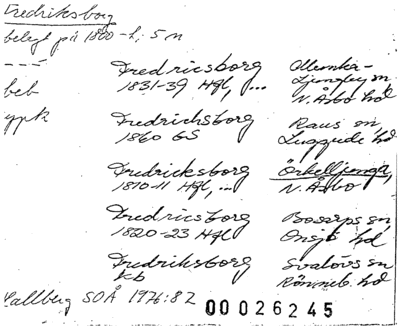 Fredriksborg
belagt på 1800-t, 5 n
Fredricsborg Munka-
1831-39 Hfl, ... Ljungby sn
beb N. Åsbo hd
ypk Fredrichsborg Raus sn,
1860 GS Luggude hd
Fredricksborg Örkelljunga,
1810-11 Hfl, ... N. Åsbo
Fredricsborg Bosarps sn
1820-23 Hfl Onsjö hd
Fredriksborg Svalövs sn
kb Rönneb. hd
Hallberg SOÅ 1976:82 00026245